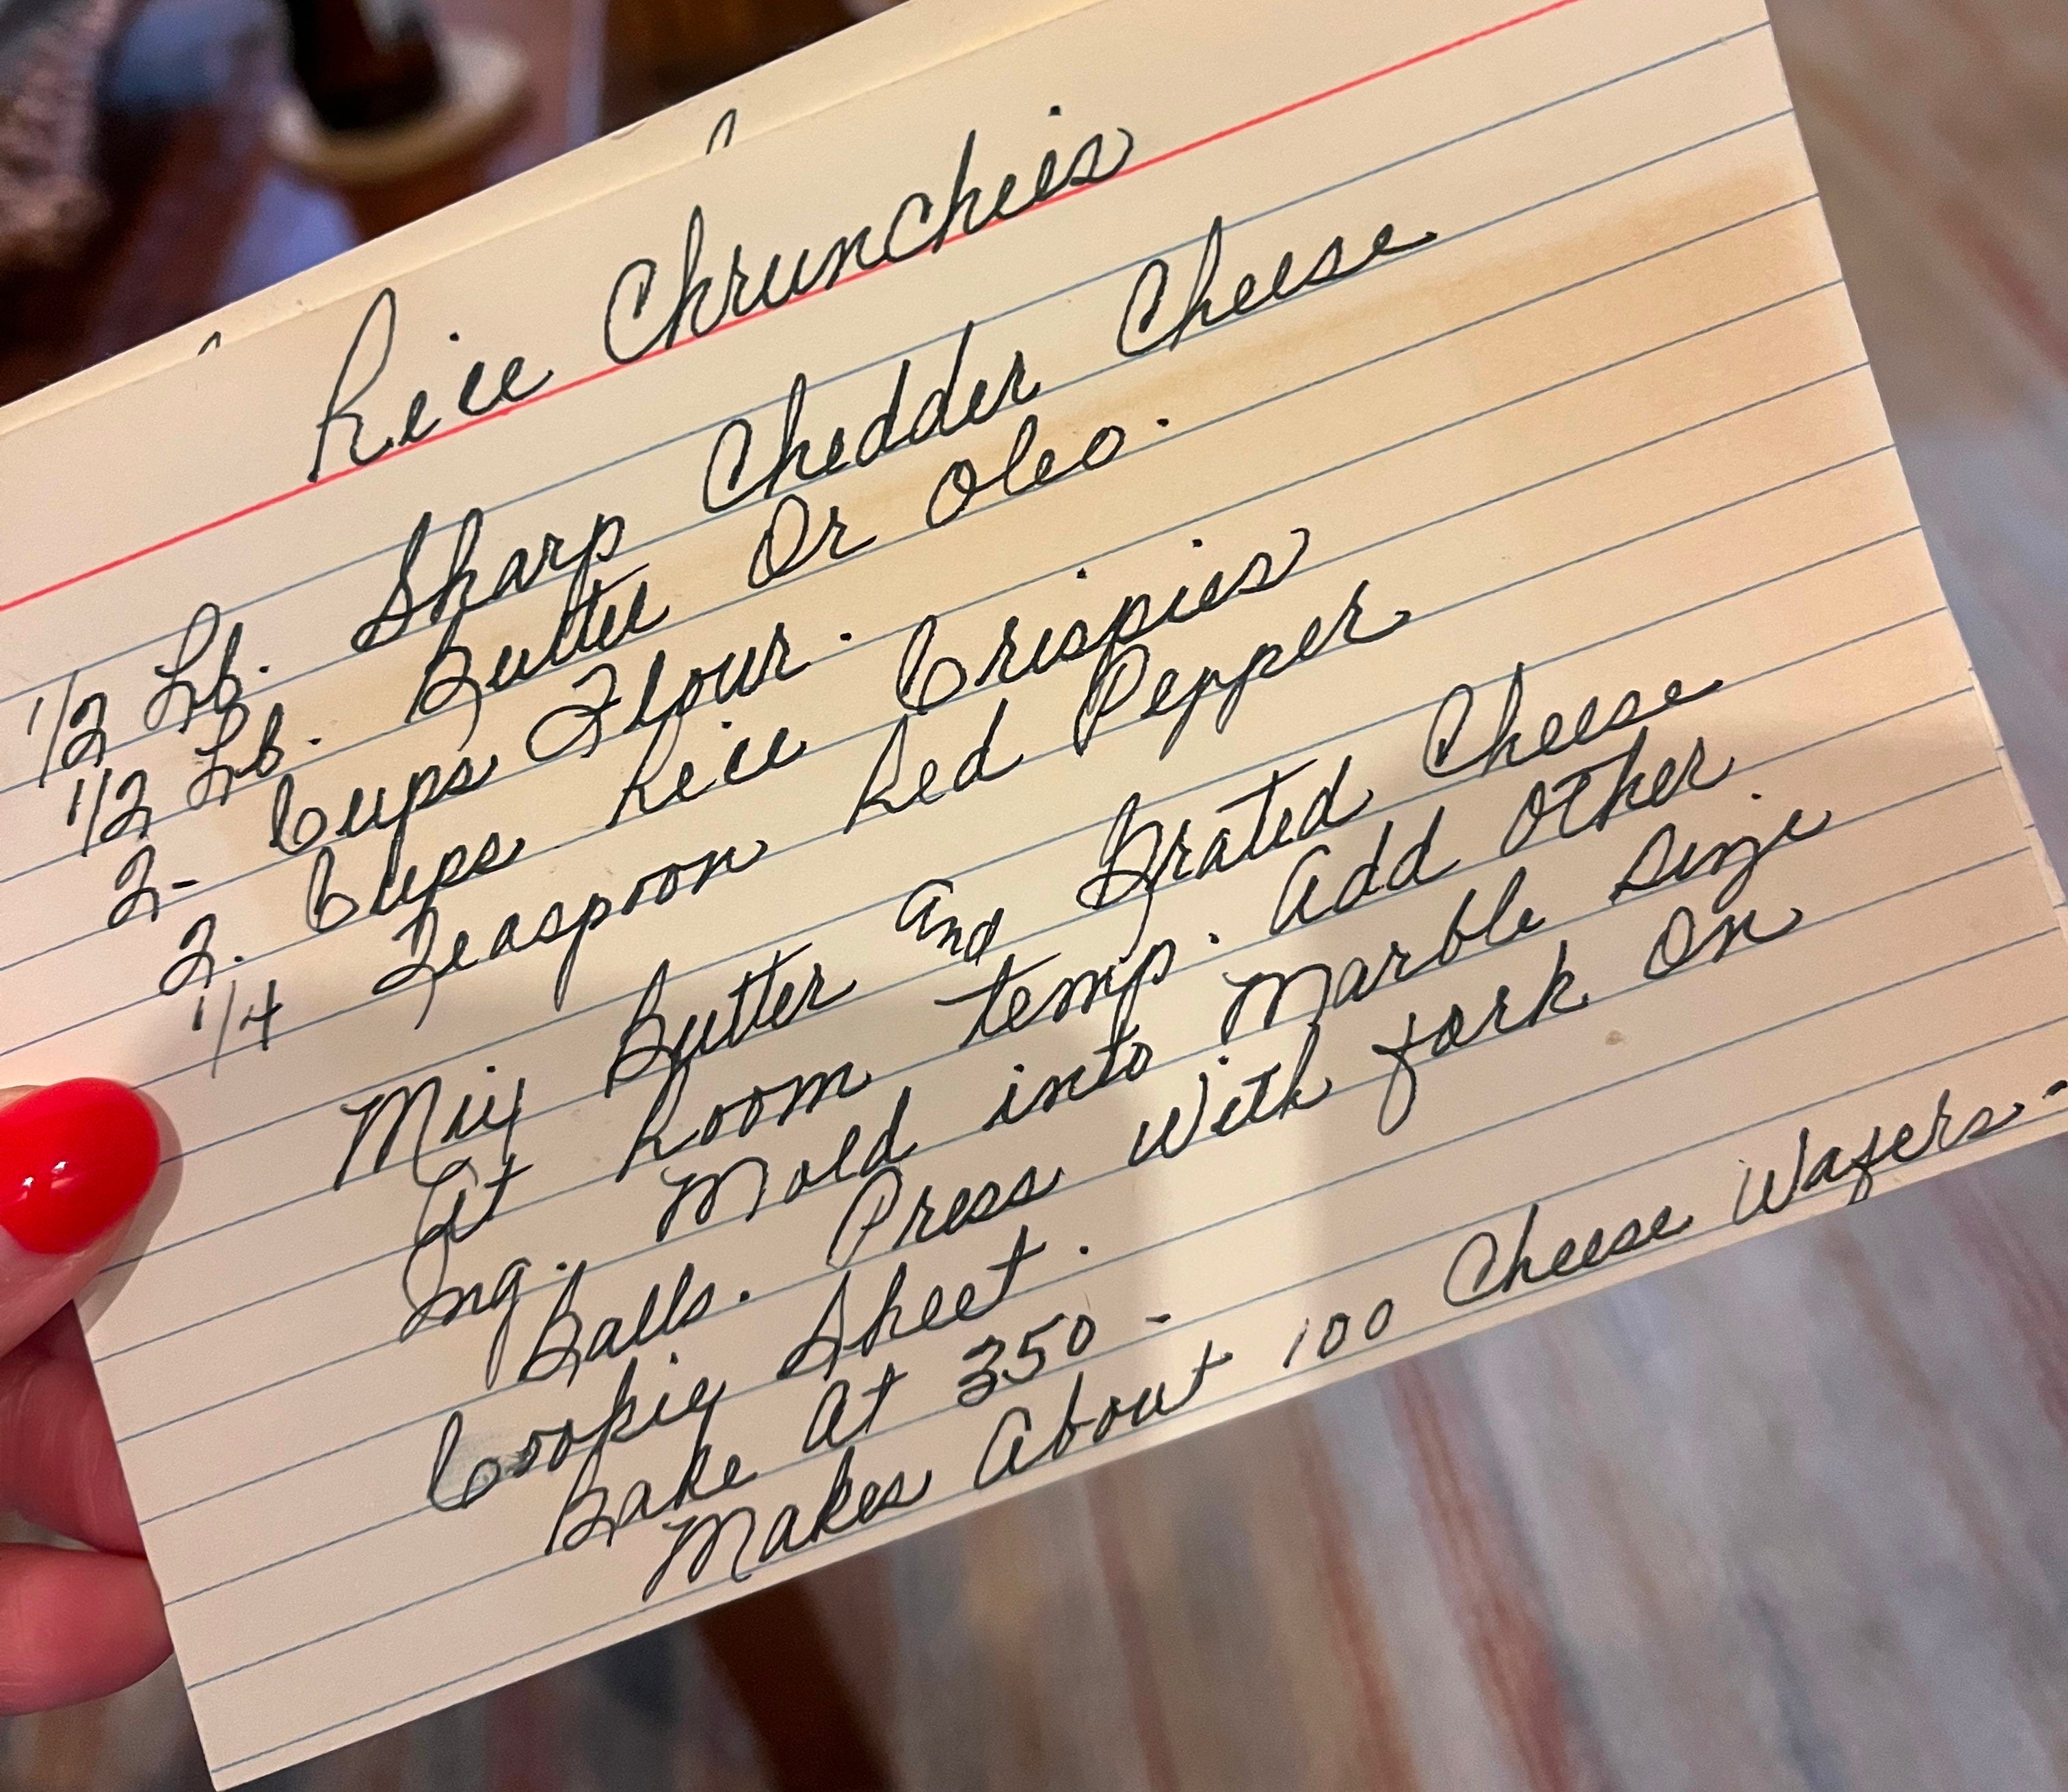 Rice Chrunchies
1/2 Lb. Sharp Chedder Cheese
1/2 Lb. Butter Or Oleo.
2- Cups Flour.
2. Cups Rice Crispies
1/4 Teaspoon Red Pepper
Mix Butter and Grated Cheese
At Room temp. Add Other
Ing. Mold into Marble Size
Balls. Press With fork On
Cookie Sheet.
Bake At 350-
Makes About 100 Cheese Wafers-